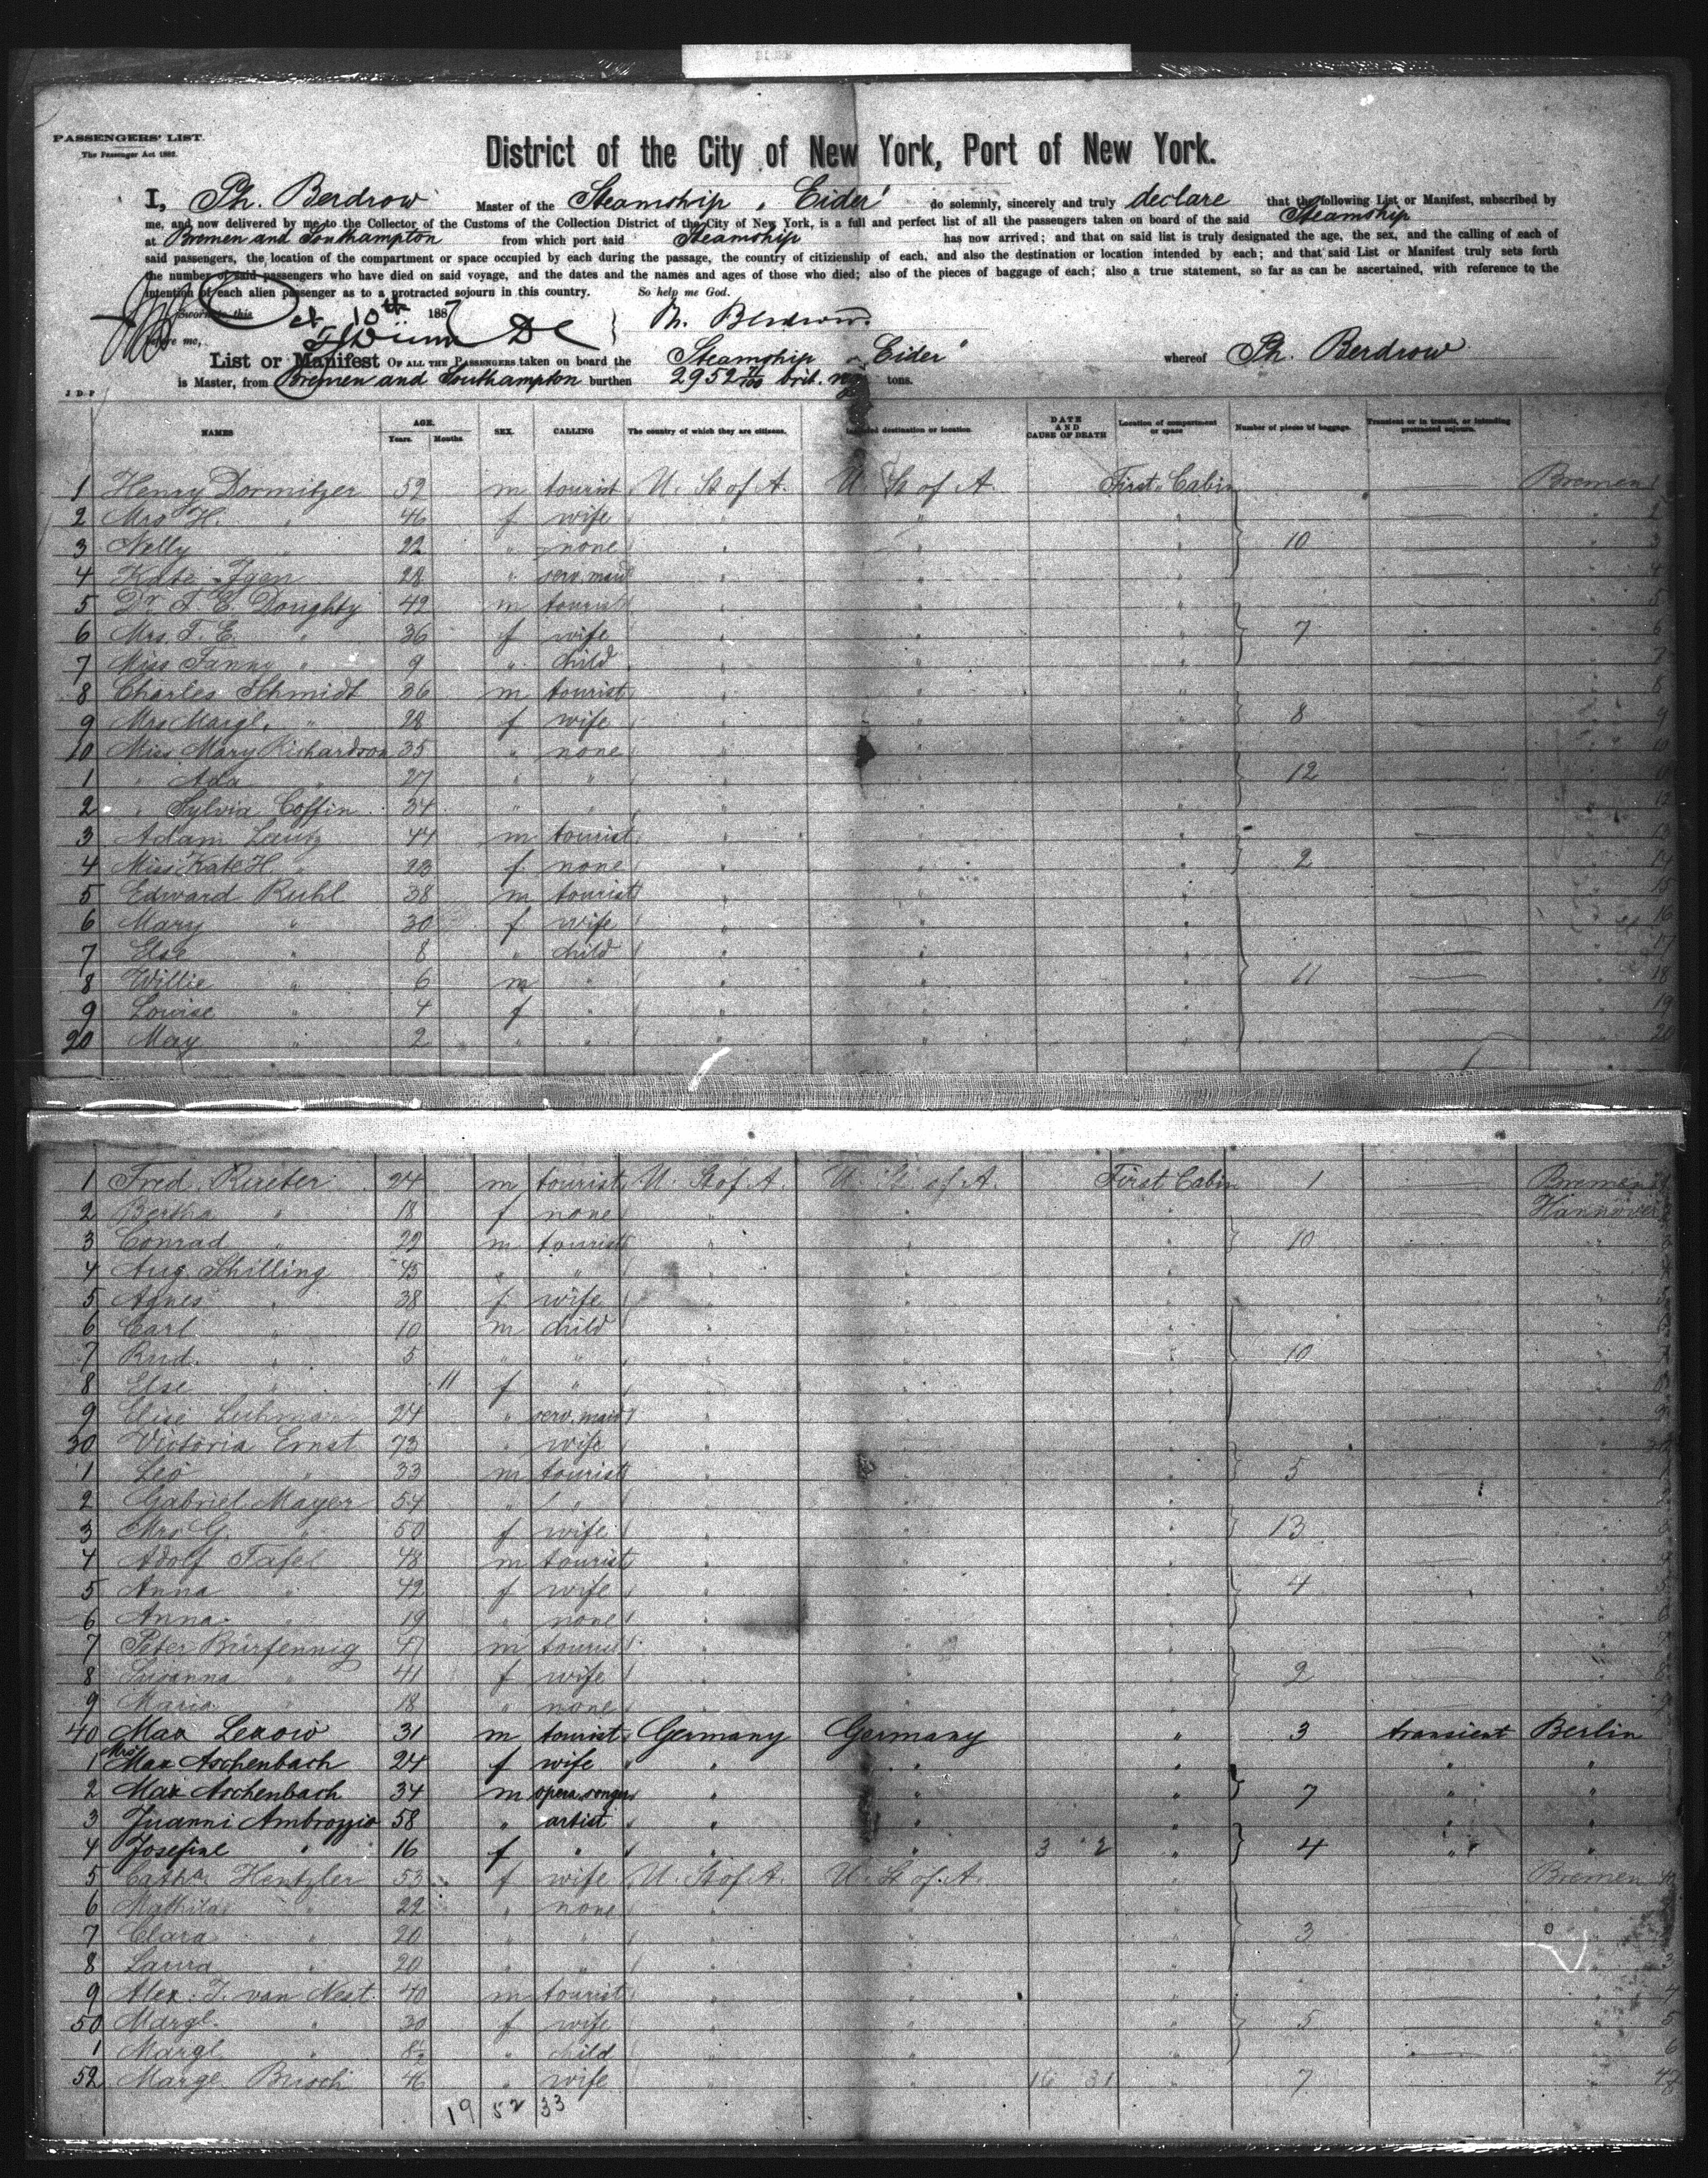 PASSENGERS' LIST.
The Passenger Act 1882.
District of the City of New York, Port of New York.
I, Ph. Berdrow Master of the Steamship "Eider" do solemnly, sincerely and truly declare that the following List or Manifest, subscribed by
me, and now delivered by me to the Collector of the Customs of the Collection District of the City of New York, is a full and perfect list of all the passengers taken on board of the said Steamship
at Bremen and Southampton from which port said Steamship has now arrived; and that on said list is truly designated the age, the sex, and the calling of each of
said passengers, the location of the compartment or space occupied by each during the passage, the country of citizenship of each, and also the destination or location intended by each; and that said List or Manifest truly sets forth
the number of said passengers who have died on said voyage, and the dates and the names and ages of those who died; also of the pieces of baggage of each; also a true statement, so far as can be ascertained, with reference to the
intention of each alien passenger as to a protracted sojourn in this country. So help me God.
Sworn to this 10th 188
before me, Ph. Berdrow
List or Manifest OF ALL THE PASSENGERS taken on board the Steamship "Eider" whereof Ph. Berdrow
is Master, from Bremen and Southampton burthen 2952 71/100 brit. tons.
J D P
NAMES AGE. Years. Months SEX. CALLING The country of which they are citizens. destination or location. DATE AND CAUSE OF DEATH Location of compartment or space Number of pieces of baggage. Transient or in transit, or intending protracted sojourn.
1 Henry Dormitzer 52 m tourist U. St of A. U. St of A. First Cabin Bremen 1
2 Mrs H. " 46 f wife " " " 2
3 Nelly " 22 " none " " " 10 " 3
4 Kate Egan 28 " serv. maid " " " 4
5 Dr. F. E. Doughty 42 m tourist " " " 5
6 Mrs. F. E. " 36 f wife " " " 7 " 6
7 Miss Fanny " 9 " child " " " 7
8 Charles Schmidt 36 m tourist " " " 8
9 Mrs Margt. " 28 f wife " " " 8 " 9
10 Miss Mary Richardson 35 " none " " " 10
1 " Ada " 27 " " " " " 12 " 11
2 " Sylvia Coffin 34 " " " " " 12
3 Adam Lautz 44 m tourist " " " 13
4 Miss Kate H. " 23 f none " " " 2 " 14
5 Edward Ruhl 38 m tourist " " " 15
6 Mary " 30 f wife " " " 16
7 Else " 8 " child " " " 17
8 Willie " 6 m " " " " 11 " 18
9 Louise " 4 f " " " " 19
20 May " 2 " " " " " 20
1 Fred. Rueter 24 m tourist U. St of A. U. St. of A. First Cabin 1 Bremen
2 Bertha " 18 f none " " " Hannover
3 Conrad " 22 m tourist " " " 10 "
4 Aug. Schilling 45 " " " " "
5 Agnes " 38 f wife " " " "
6 Carl " 10 m child " " "
7 Rud. " 5 " " " " " 10
8 Else " 11 f " " "
9 Elise Lehmann 24 " serv. maid " " "
30 Victoria Ernst 73 " wife " " " "
1 Leo " 33 m tourist " " " 5 "
2 Gabriel Mayer 54 " " " " " "
3 Mrs G. " 50 f wife " " " 13 "
4 Adolf Tafel 48 m tourist " " " "
5 Anna " 42 f wife " " " 4 "
6 Anna " 19 " none " " " "
7 Peter Bürfennig 47 m tourist " " " "
8 Susanna " 41 f wife " " " 2 "
9 Maria " 18 " none " " " "
40 Max Lexow 31 m tourist Germany Germany " 3 transient Berlin
1 Mrs Max Aschenbach 24 f wife " " " " "
2 Max Aschenbach 34 m opera singer " " " 7 " "
3 Juanni Ambroggio 58 " artist " " " " "
4 Josefine " 16 f " " " 3 2 " 4 " "
5 Catha Hentzler 53 f wife U. St of A. U. St of A. " Bremen
6 Mathilda " 22 " none " " " "
7 Clara " 20 " " " " " 3
8 Laura " 20 " " " " " " 3
9 Alex. T. van Nest 40 m tourist " " " " 4
50 Margt. " 30 f wife " " " 5 " 5
1 Margt. " 8½ " child " " " " 6
52 Margt. Busch 46 " wife " " 16 31 " 7 "
19 52 33